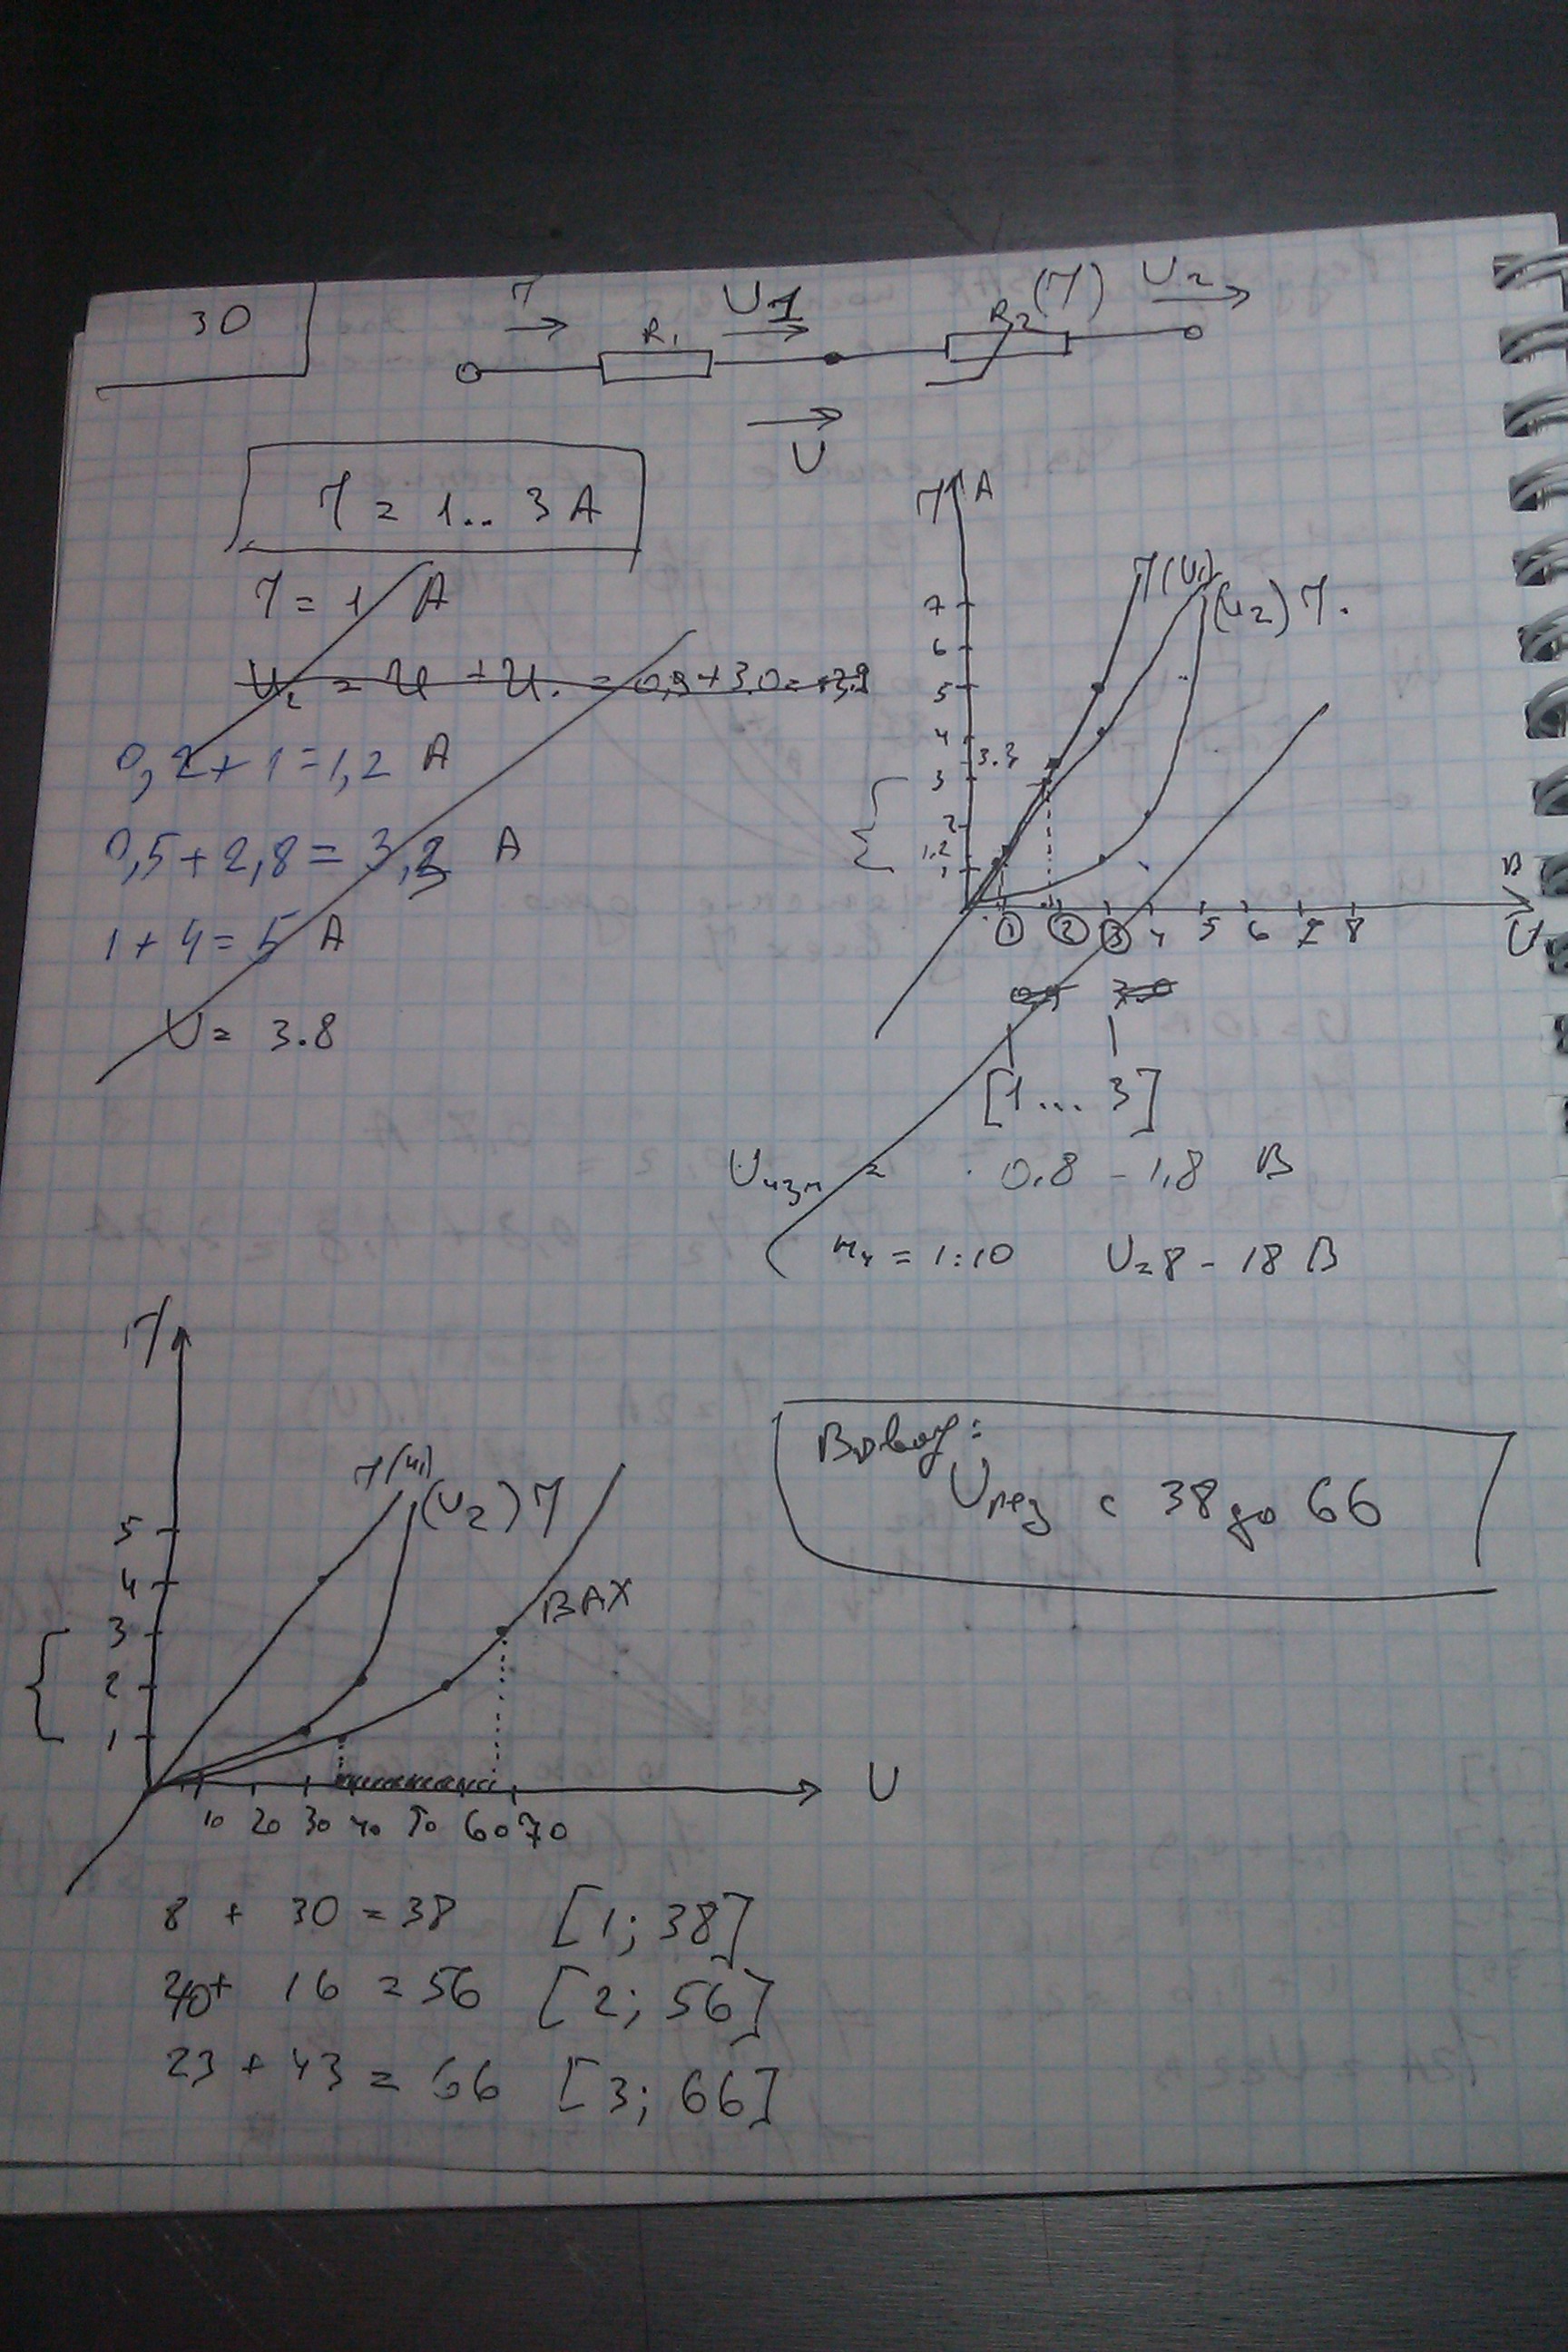 30
I U1 (I) U2
R1 R2
U
I = 1.. 3 A
I = 1 A
0,2 + 1 = 1,2 A
0,5 + 2,8 = 3,3 A
1 + 4 = 5 A
U = 3.8
I A
I(U1)
(U2) I.
7
6
5
4
3.3
3
2
1.2
1
B
1 2 3 4 5 6 7 8
U
[1... 3]
Uизм = 0.8 - 1,8 В
= 1:10 U = 8 - 18 В
I
I(U1)
(U2) I
ВАХ
5
4
3
2
1
U
10 20 30 40 50 60 70
Вывод:
Uрез с 38 до 66
8 + 30 = 38 [1; 38]
40 + 16 = 56 [2; 56]
23 + 43 = 66 [3; 66]